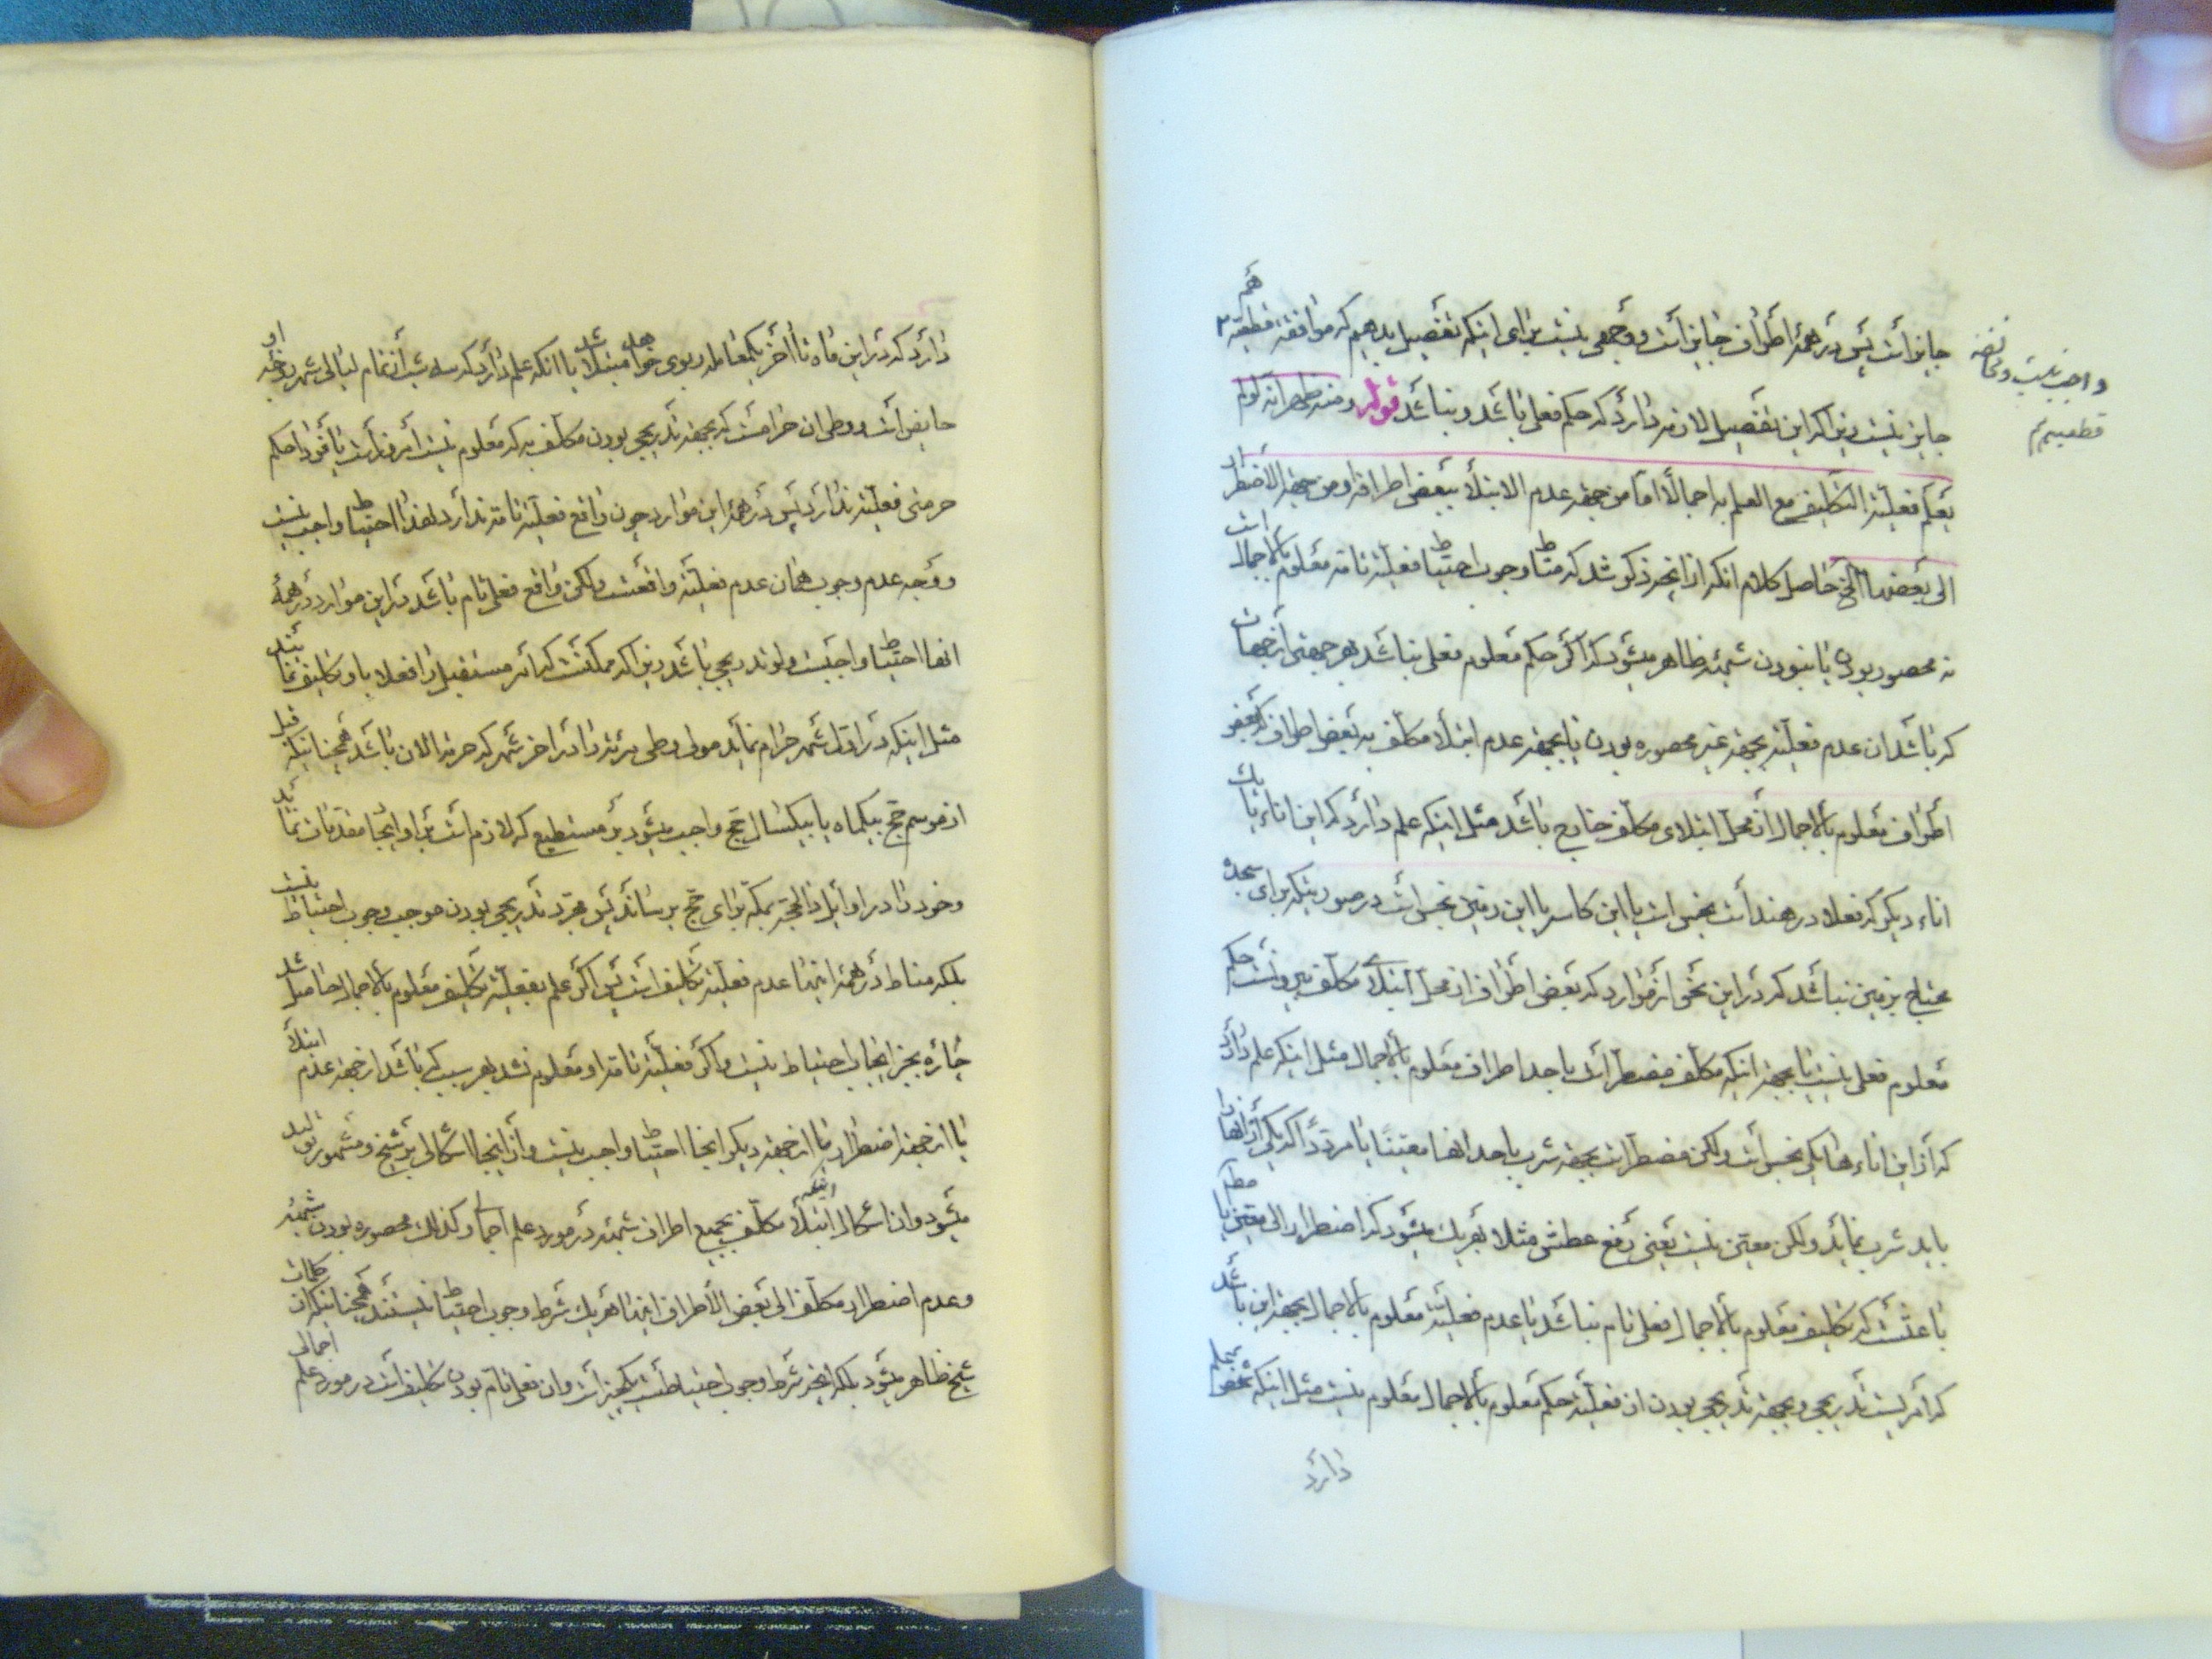 جایز است پس در همهٔ اطراف جایز است و وجهی نیست برای اینکه تفصیل بدهیم که موافقة قطعیة هم
واجب نیست و مخالفة
قطعیه هم
جایز نیست زیرا که این تفصیل لازمه دارد که حکم فعلی باشد و نباشد قوله و منه ظهر انه لو لم
یعلم فعلیة التکلیف مع العلم به اجمالا اما من جهة عدم الابتلاء ببعض اطرافه و من جهة الاضطرار
الی بعضها الخ حاصل کلام انکه از انچه ذکر شد که مناط وجوب احتیاط فعلیة تامه معلوم بالاجمال است
نه محصور بودن یا نبودن شبهه ظاهر میشود که اگر حکم معلوم فعلی نباشد بهر جهتی از جهات
که باشد ان عدم فعلیة بجهة غیر محصوره بودن یا بجهة عدم ابتلاء مکلف به بعض اطراف که بعض
اطراف معلوم بالاجمال از محل ابتلای مکلف خارج باشد مثل اینکه علم دارد که این اناء یا یک
اناء دیگر که فعلا در هند است نجس است یا این کاسه یا این زمین نجس است در صورتیکه برای سجده
محتاج بزمین نباشد که در این نحو از موارد که بعض اطراف از محل ابتلاء مکلف بیرونست حکم
معلوم فعلی نیست یا بجهة اینکه مکلف مضطر است باحد اطراف معلوم بالاجمال مثل اینکه علم دارد
که از این اناءها یکی نجس است ولکن مضطر است بجهة شرب باحد انها معینا یا مرددا که یکی از انها را
باید شرب نماید ولکن معین نیست یعنی رفع عطش مثلا بهر یک میشود که اضطرار الی معین یا مطلقا
باعثست که تکلیف معلوم بالاجمال فعلی تام نباشد یا عدم فعلیة معلوم بالاجمال بجهة این باشد
که امریست تدریجی و بجهة تدریجی بودن ان فعلیة حکم معلوم بالاجمال معلوم نیست مثل اینکه شخص علم
دارد
دارد که در این ماه تا آخر بیک معامله ربوی مبتلا خواهد شد یا انکه علم دارد که سه شب از تمام لیالی شهر زوجه او
حایض است و وطی ان حرامست که بجهة تدریجی بودن مکلف به که معلوم نیست امروز است یا فردا حکم
حرمتی فعلیة ندارد پس در همهٔ این موارد چون واقع فعلیة تامه ندارد لهذا احتیاط واجب نیست
و وجه عدم وجوب همان عدم فعلیة واقعست ولکن واقع فعلی تام باشد در این موارد در همهٔ
انها احتیاط واجبست ولو تدریجی باشد زیرا که ممکنست که امر مستقبل را فعلا باو تکلیف نماید
مثل اینکه در اول شهر حرام نماید مولی وطی مرئه را در اخر شهر که حرمة الان باشد همچنانکه قبل
از موسم حج بیکماه یا بیکسال حج واجب میشود بر مستطیع که لازم است بر او ایجاد مقدمات نماید
و خود را در اوایل ذالحجة بمکه برای حج برساند پس مجرد تدریجی بودن موجب وجوب احتیاط نیست
بلکه مناط در همهٔ اینها عدم فعلیة تکلیف است پس اگر علم بفعلیة تکلیف معلوم بالاجمال حاصل شد
چاره بجز ایجاب احتیاط نیست و اگر فعلیة تامه او معلوم نشد بهر سبب که باشد از جهة عدم ابتلاء
یا از جهة اضطرار یا از جهة دیگر انجا احتیاط واجب نیست و از اینجا اشکالی بر شیخ و مشهور تولید
میشود و ان اشکال اینکه ابتلاء مکلف بجمیع اطراف شبهه در مورد علم اجمالی و کذلک محصوره بودن شبهه
و عدم اضطرار مکلف الی بعض الاطراف اینها هر یک شرط وجوب احتیاط نیستند همچنانکه از کلمات
شیخ ظاهر میشود بلکه انچه شرط وجوب احتیاطست یکچیز است و ان فعلی تام بودن تکلیف است در مورد علم اجمالی